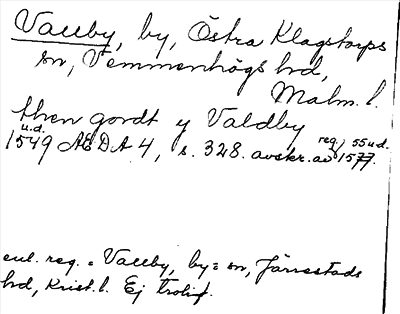 Vallby, by, Östra Klagstorps
sn, Vemmenhögs hd,
Malm. l.
then gordt y Valdby
u.d. reg. ssud.
1549 AEDA 4, s. 328. avskr. av 1577.
enl. reg. = Vallby, by = sn, Järrestads
hd, Krist. l. Ej trolig.